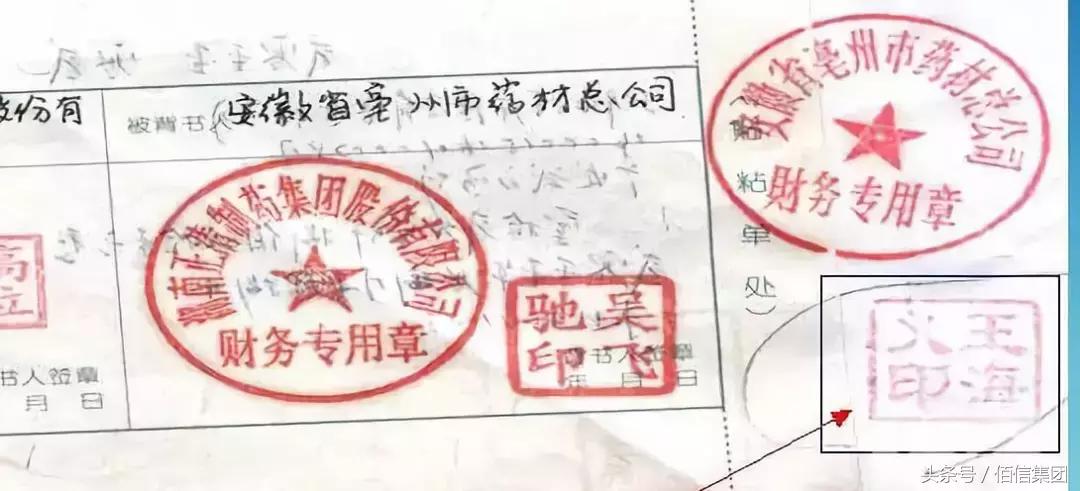 份有
被背书人
安徽省亳州市药材总公司
湖南正清制药集团股份有限公司
财务专用章
吴飞
驰印
书人签章
年 月 日
高立
书人签章
月 日
安徽省亳州市药材总公司
財务专用章
粘单处）
王海
印
头条号 / 佰信集团